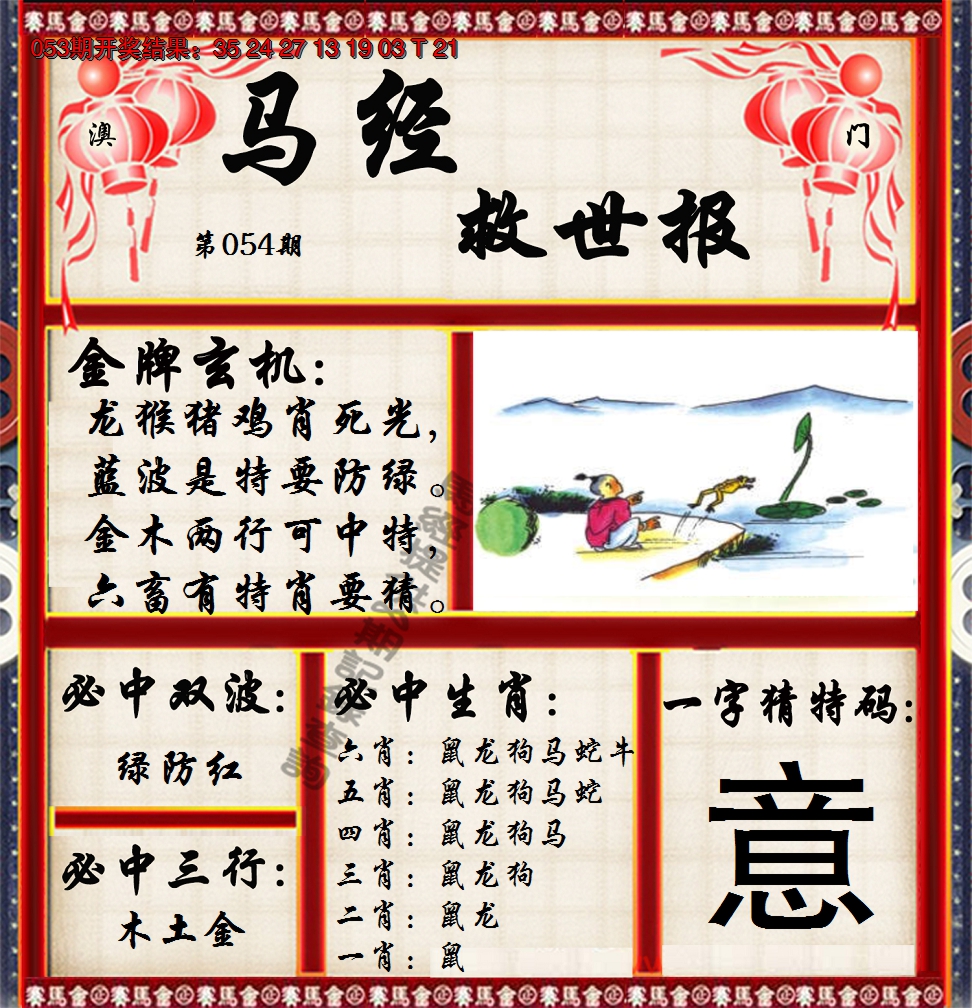 053期开奖结果：35 24 27 13 19 03 T 21
澳
门
马经
救世报
第054期
金牌玄机：
龙猴猪鸡肖死光，
蓝波是特要防绿。
金木两行可中特，
六畜有特肖要猜。
必中双波：
绿防红
必中三行：
木土金
必中生肖：
六肖：鼠龙狗马蛇牛
五肖：鼠龙狗马蛇
四肖：鼠龙狗马
三肖：鼠龙狗
二肖：鼠龙
一肖：鼠
一字猜特码：
意